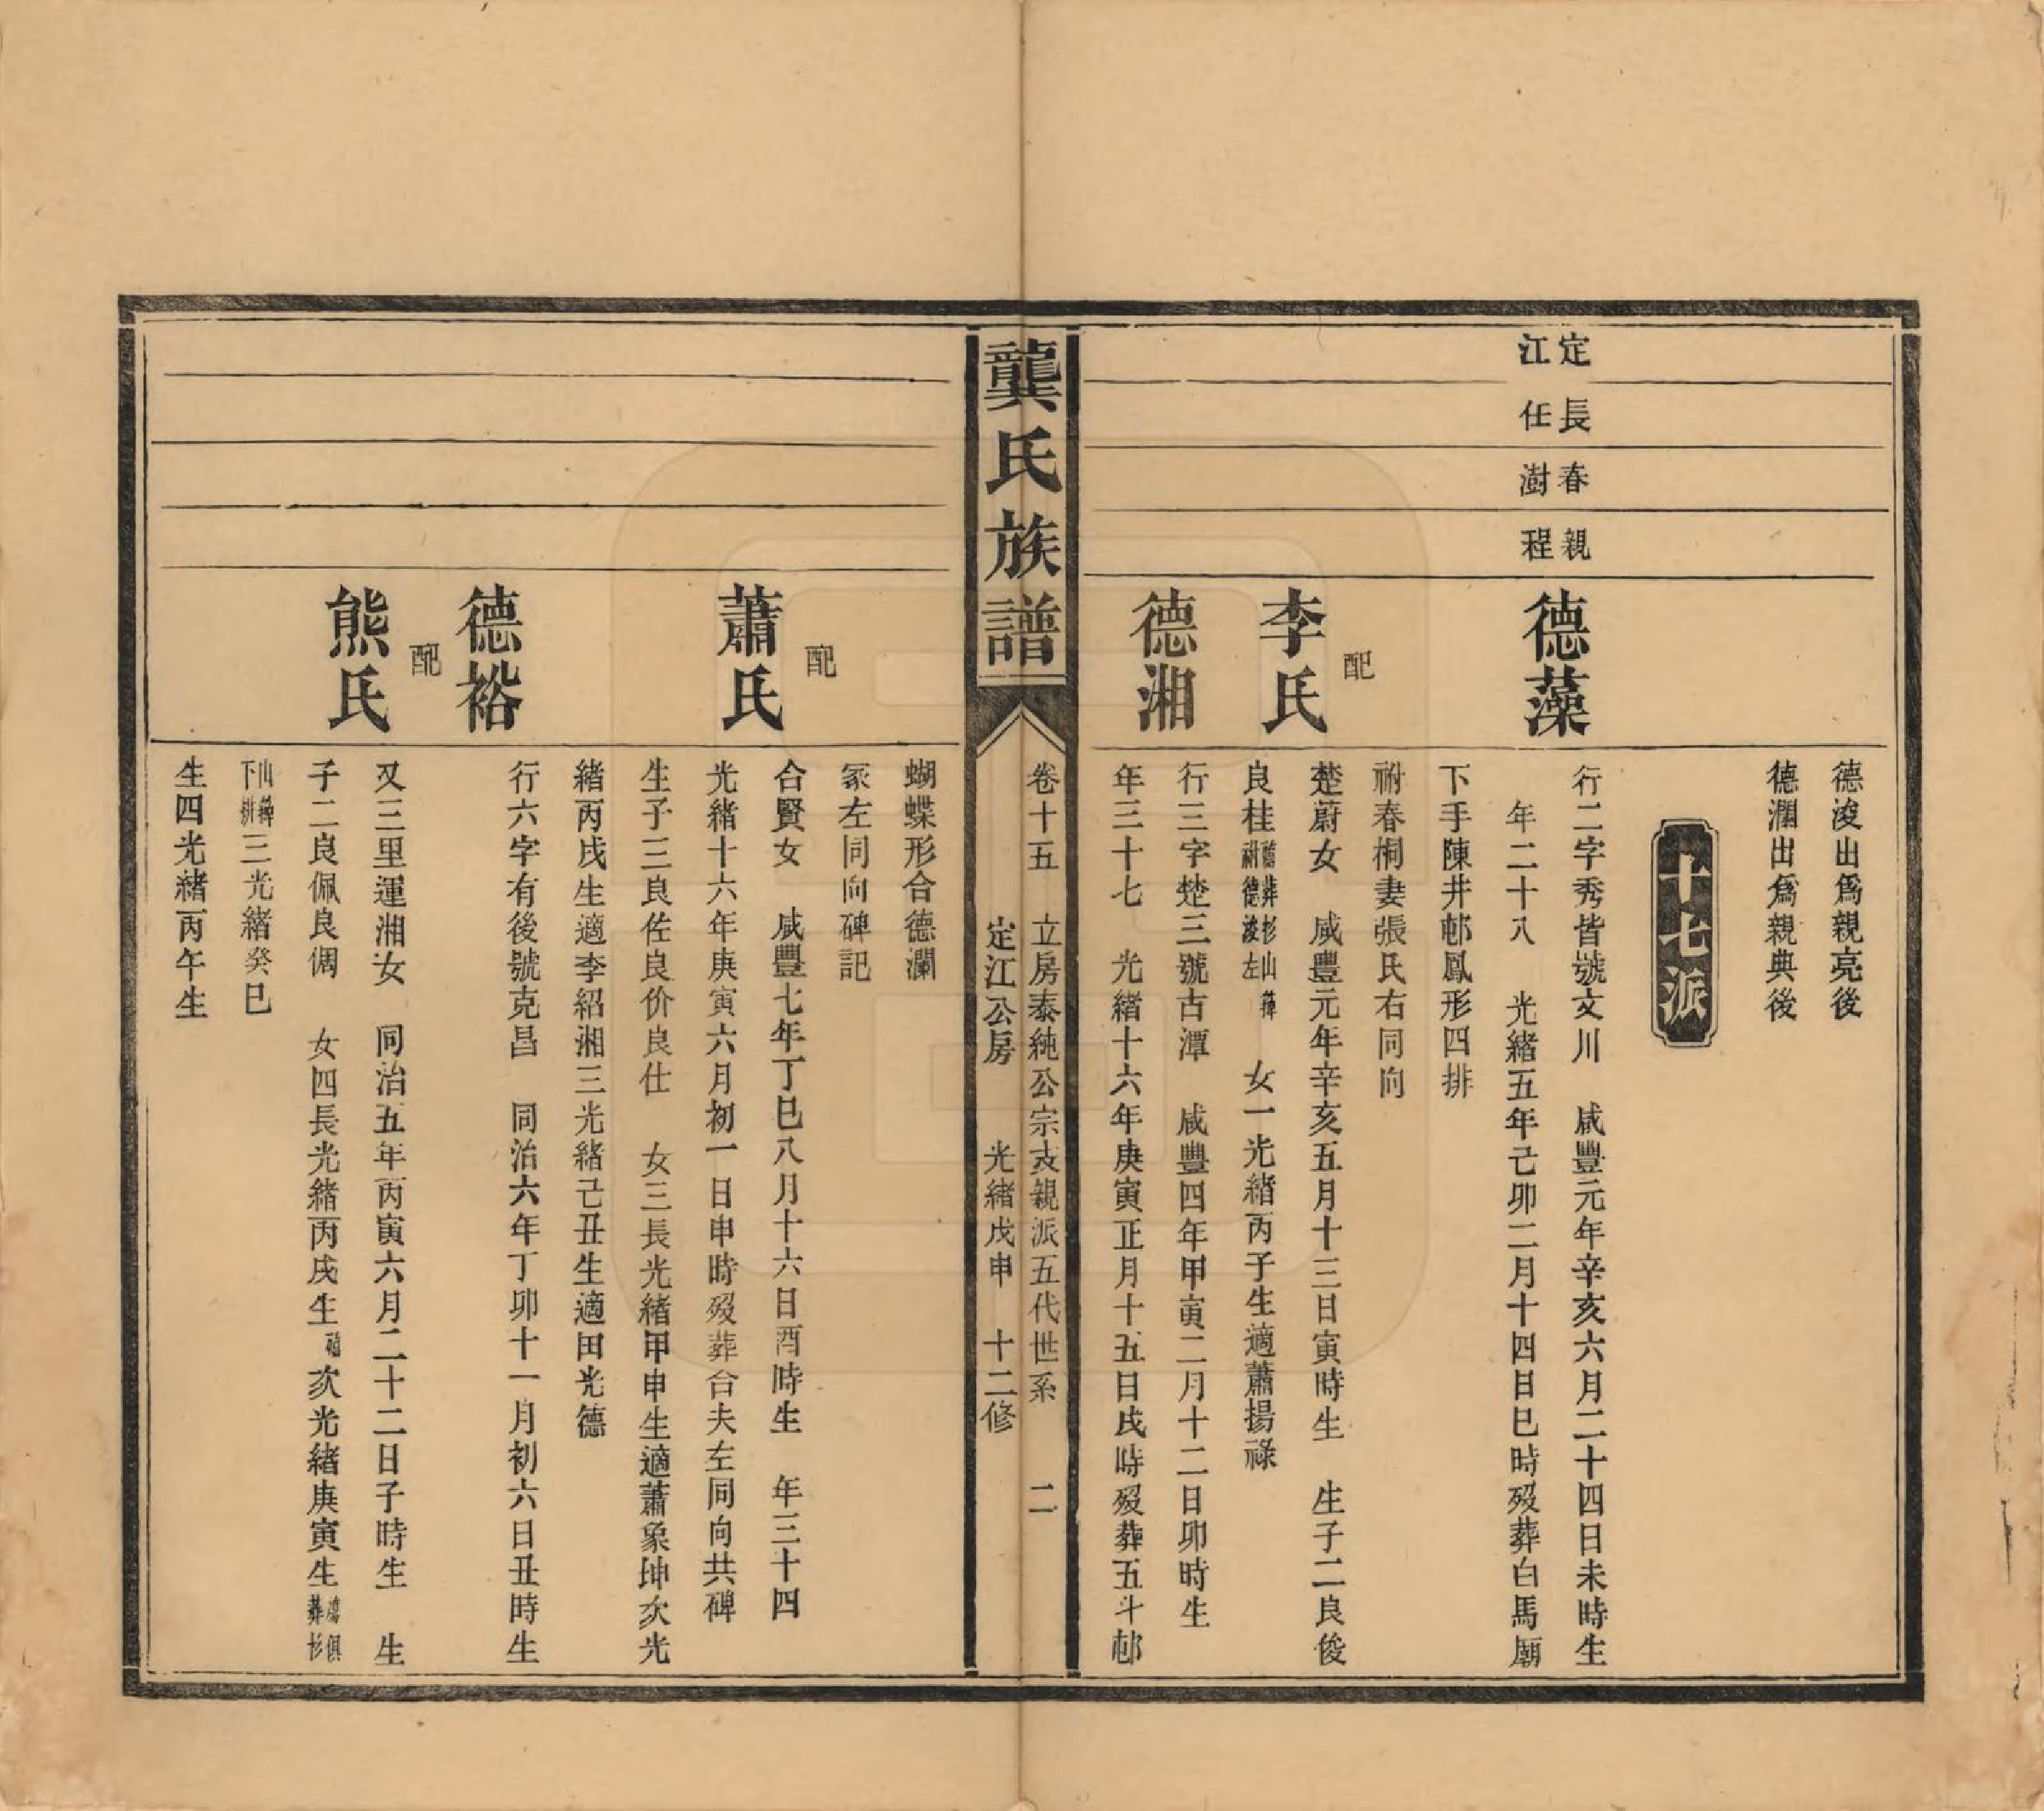 德浚出爲親亮後
德潤出爲親典後
十七派
定長春親
江任澍程
德藻
行二字秀皆號文川　咸豐元年辛亥六月二十四日未時生
年二十八　光緒五年己卯二月十四日巳時歿葬白馬廟
下手陳井邨鳳形四排
祔春桐妻張氏右同向
配
李氏
楚蔚女　咸豐元年辛亥五月十三日寅時生　生子二良俊
良桂　女一光緒丙子生適蕭揚祿
德湘
行三字楚三號古潭　咸豐四年甲寅二月十二日卯時生
年三十七　光緒十六年庚寅正月十五日戌時歿葬五斗邨
龔氏族譜
卷十五　立房泰純公宗支親派五代世系　二
定江公房　光緒戊申　十二修
蝴蝶形合德瀾
冢左同向碑記
配
蕭氏
合賢女　咸豐七年丁巳八月十六日酉時生　年三十四
光緒十六年庚寅六月初一日申時歿葬合夫左同向共碑
生子三良佐良价良仕　女三長光緒甲申生適蕭象坤次光
緒丙戌生適李紹湘三光緒己丑生適田光德
德裕
行六字有後號克昌　同治六年丁卯十一月初六日丑時生
配
熊氏
又三里運湘女　同治五年丙寅六月二十二日子時生　生
子二良佩良倜　女四長光緒丙戌生　次光緒庚寅生殤俱葬杉
三光緒癸巳
生四光緒丙午生